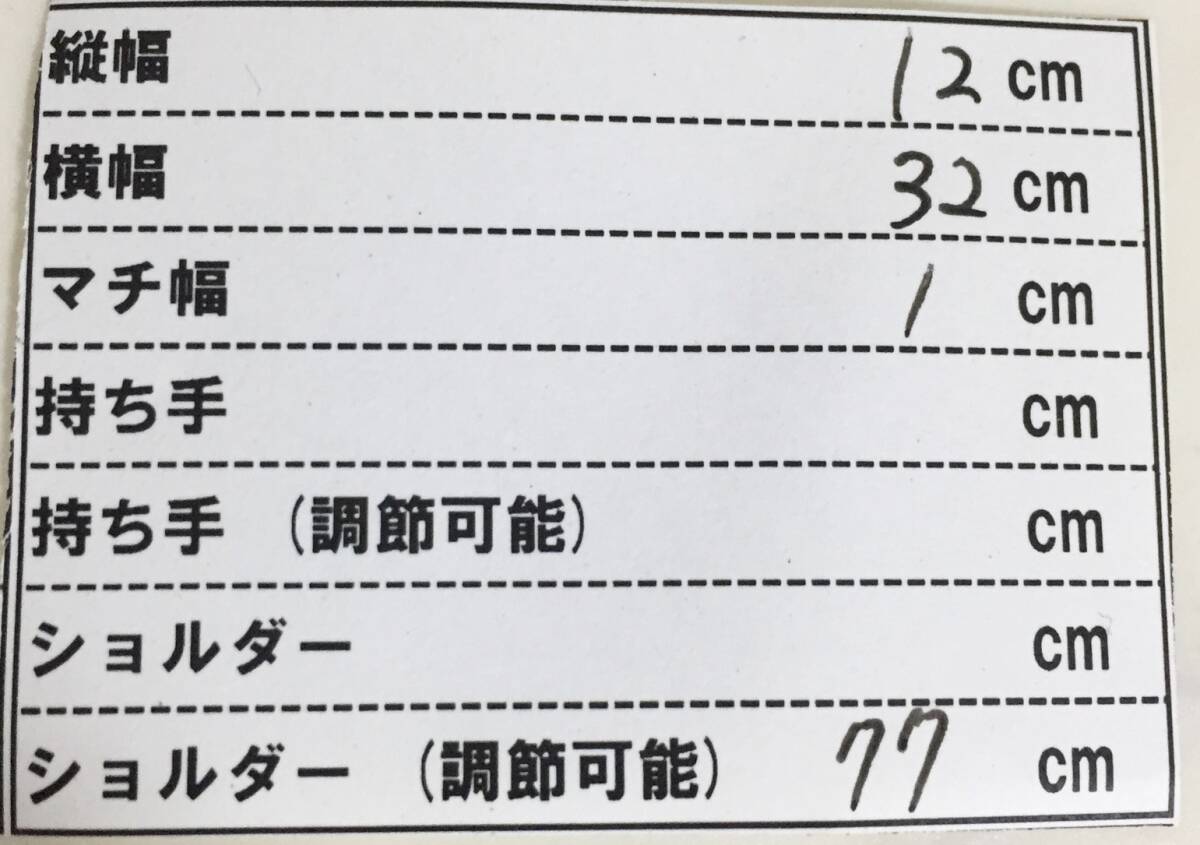 縦幅 12 cm
横幅 32 cm
マチ幅 1 cm
持ち手 cm
持ち手 (調節可能) cm
ショルダー cm
ショルダー (調節可能) 77 cm